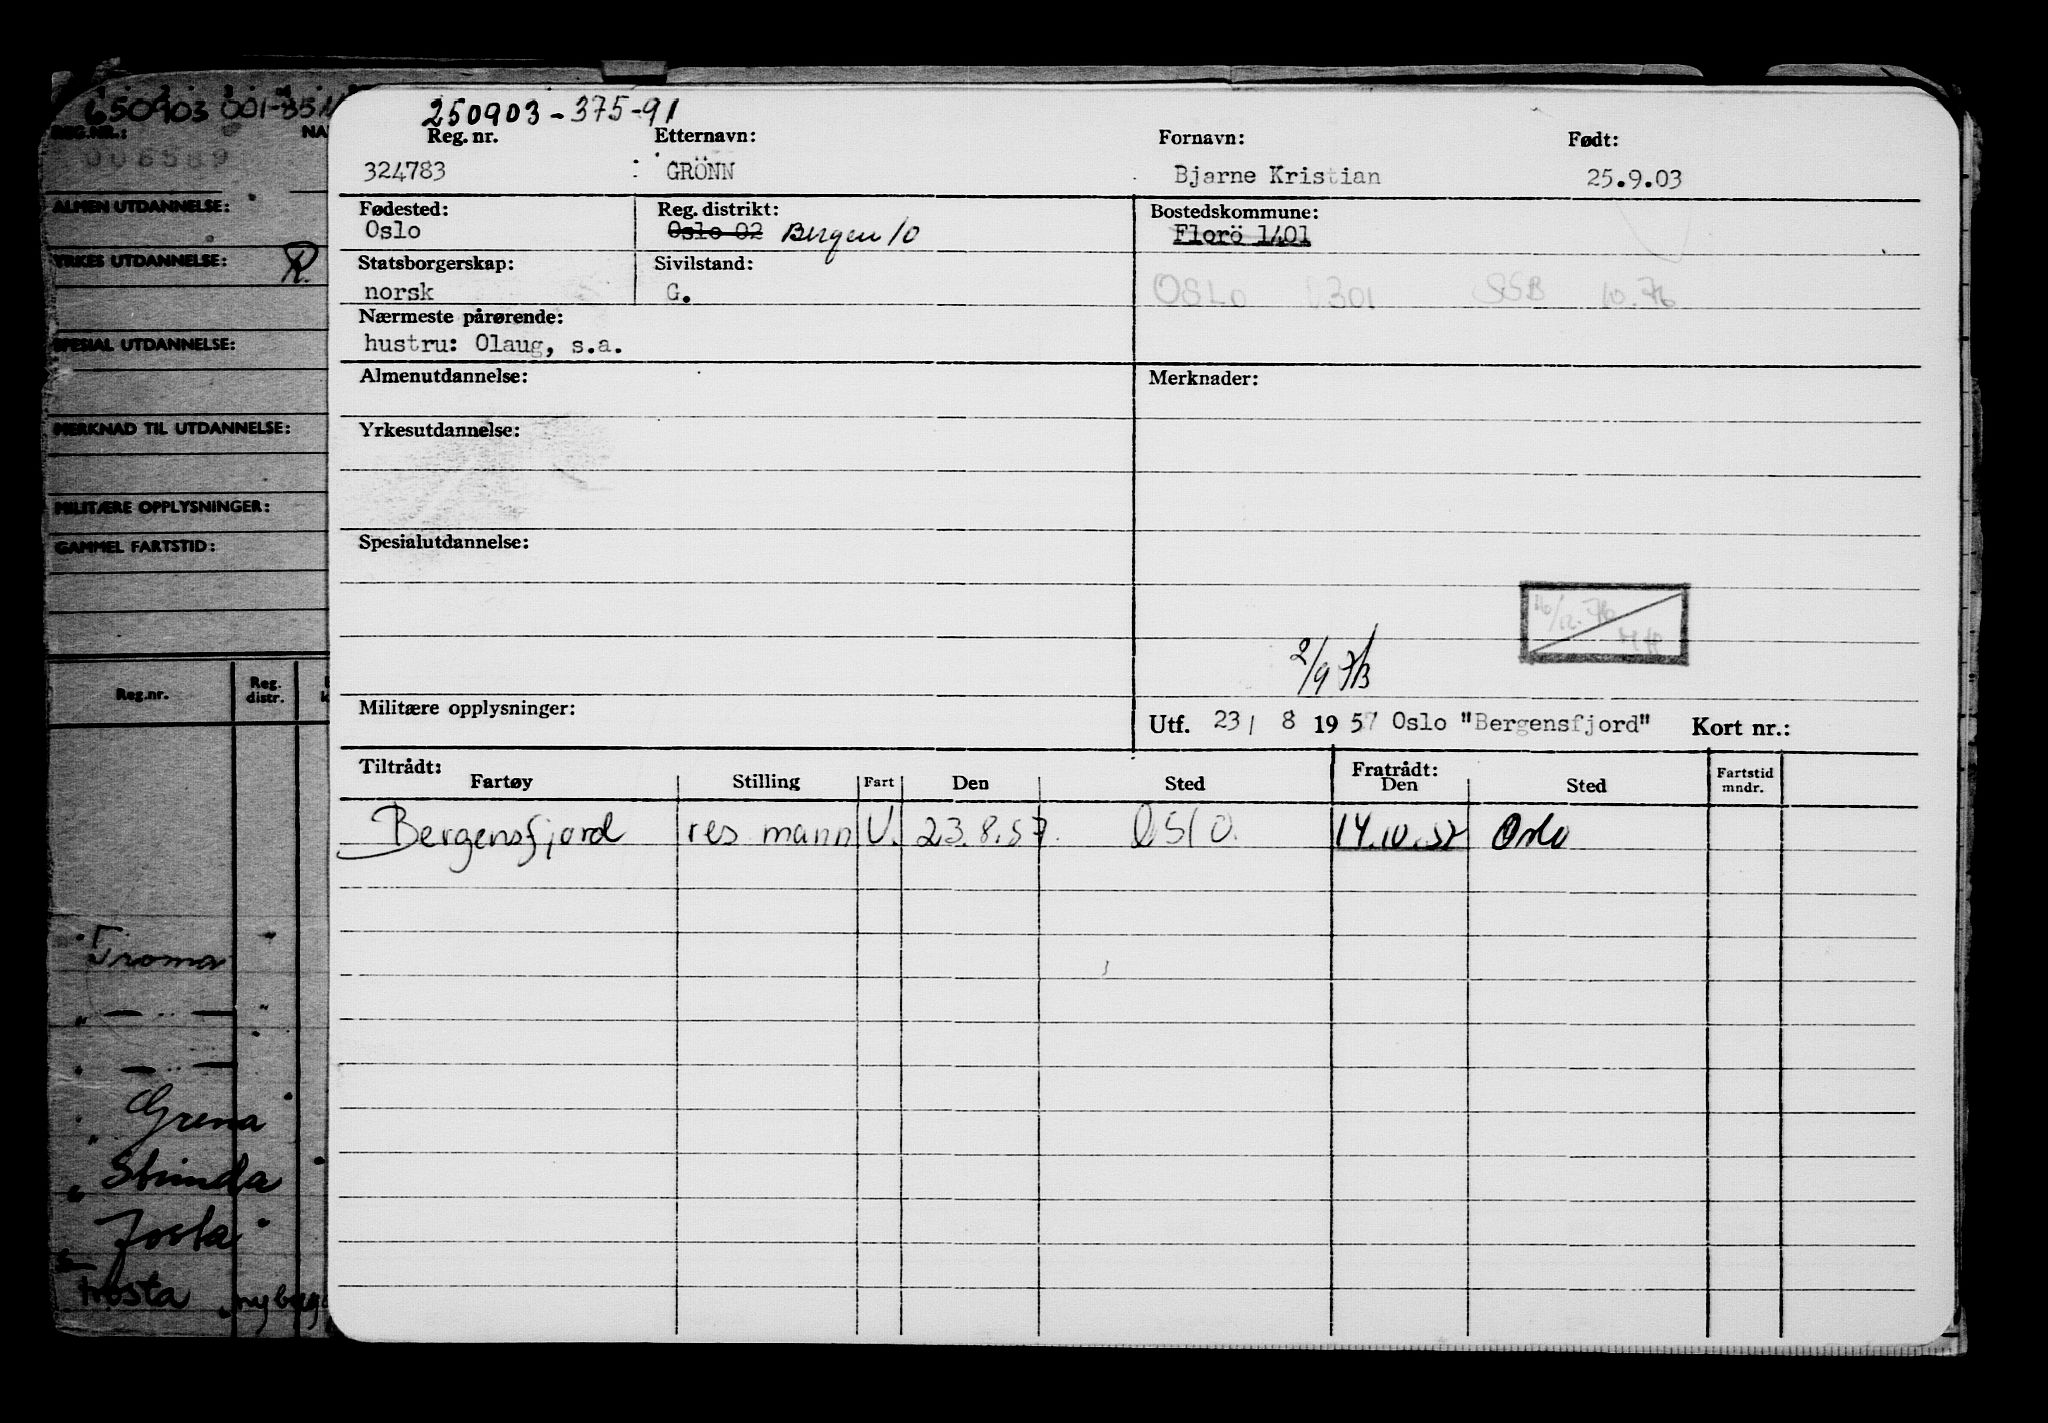 250903-375-91
Reg. nr. Etternavn: Fornavn: Født:
324783 GRÖNN Bjarne Kristian 25.9.03
Fødested: Reg. distrikt: Bostedskommune:
Oslo Oslo 02 Bergen 10 Florö 1401
Statsborgerskap: Sivilstand:
norsk G. OSLO 0301 SSB 10.76
Nærmeste pårørende:
hustru: Olaug, s.a.
Almenutdannelse: Merknader:
Yrkesutdannelse:
Spesialutdannelse:
2/9 73
Militære opplysninger: Utf. 23/ 8 1957 Oslo "Bergensfjord" Kort nr.:
Tiltrådt: Fratrådt:
Fartøy Stilling Fart Den Sted Den Sted Fartstid mndr.
Bergensfjord res mann U. 23.8.57. Oslo. 14.10.57 Oslo
650903 001-35
REG.NR.: NA
008589
ALMEN UTDANNELSE:
YRKES UTDANNELSE: R.
SPESIAL UTDANNELSE:
MERKNAD TIL UTDANNELSE:
MILITÆRE OPPLYSNINGER:
GAMMEL FARTSTID:
Reg.nr. Reg. distr.
Troma
" — " —
" — " —
" Grena "
" Stunda "
Josta "
trosta